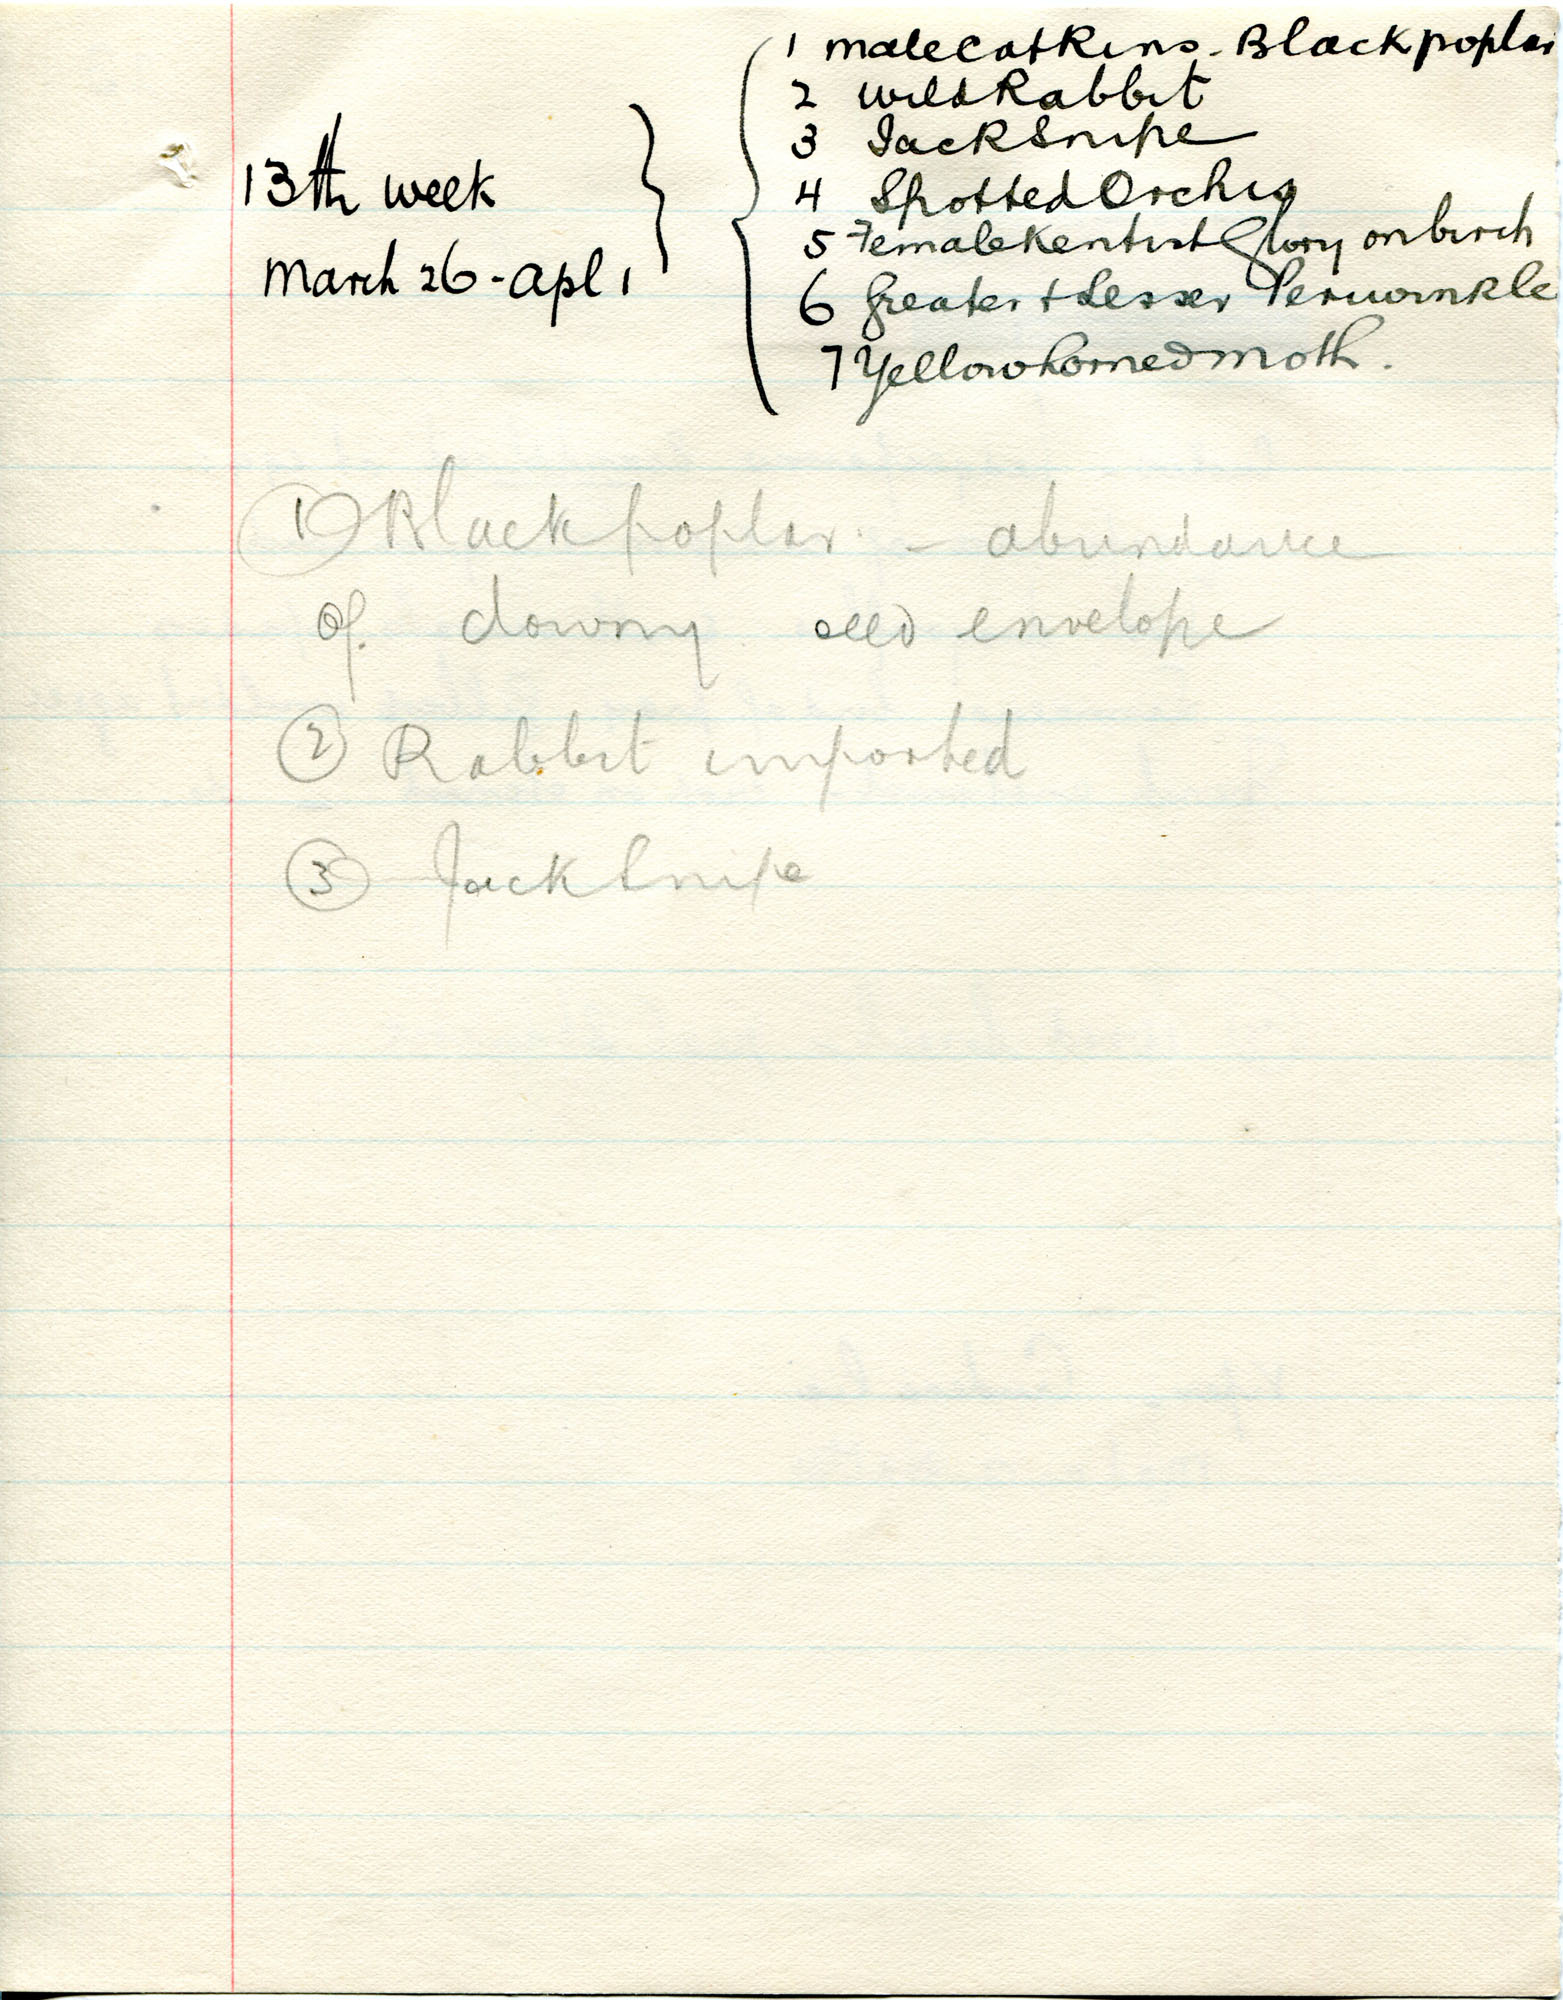 13th week
March 26 - Apl 1
1 male catkins - Black poplar
2 wild Rabbit
3 Jack Snipe
4 Spotted Orchis
5 Female Kentish Glory on birch
6 Greater + Lesser Periwinkle
7 Yellow horned moth.
1) Black poplar. - abundance
of downy seed envelope
2 Rabbit imported
3 Jack Snipe